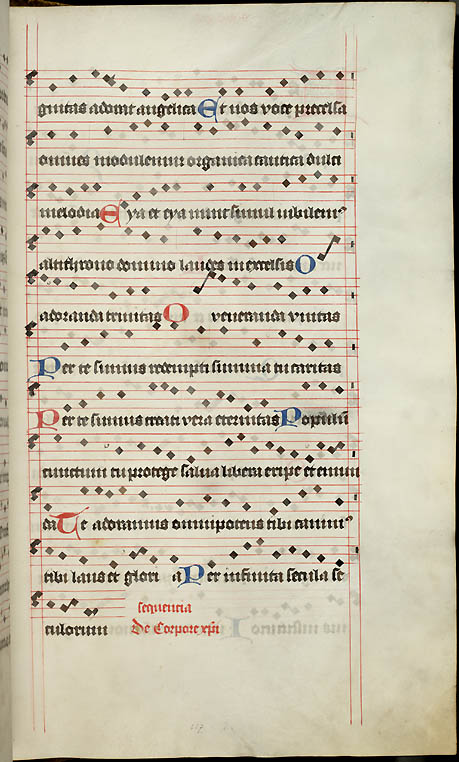 gnitas adorat angelica Et nos voce precelsa
omnes modulemur organica cantica dulci
melodia Eya et eya nunc simul iubilem⁹
altithrono domino laudes in excelsis O
adoranda trinitas O veneranda vnitas
Per te sumus redempti summa tu caritas
Per te sumus creati vera eternitas Populū
cunctum tu protege salua libera eripe et emun
da Te adoramus omnipotens tibi canim⁹
tibi laus et glori a Per infinita secula se
culorum sequencia
De Corpore xp̄i